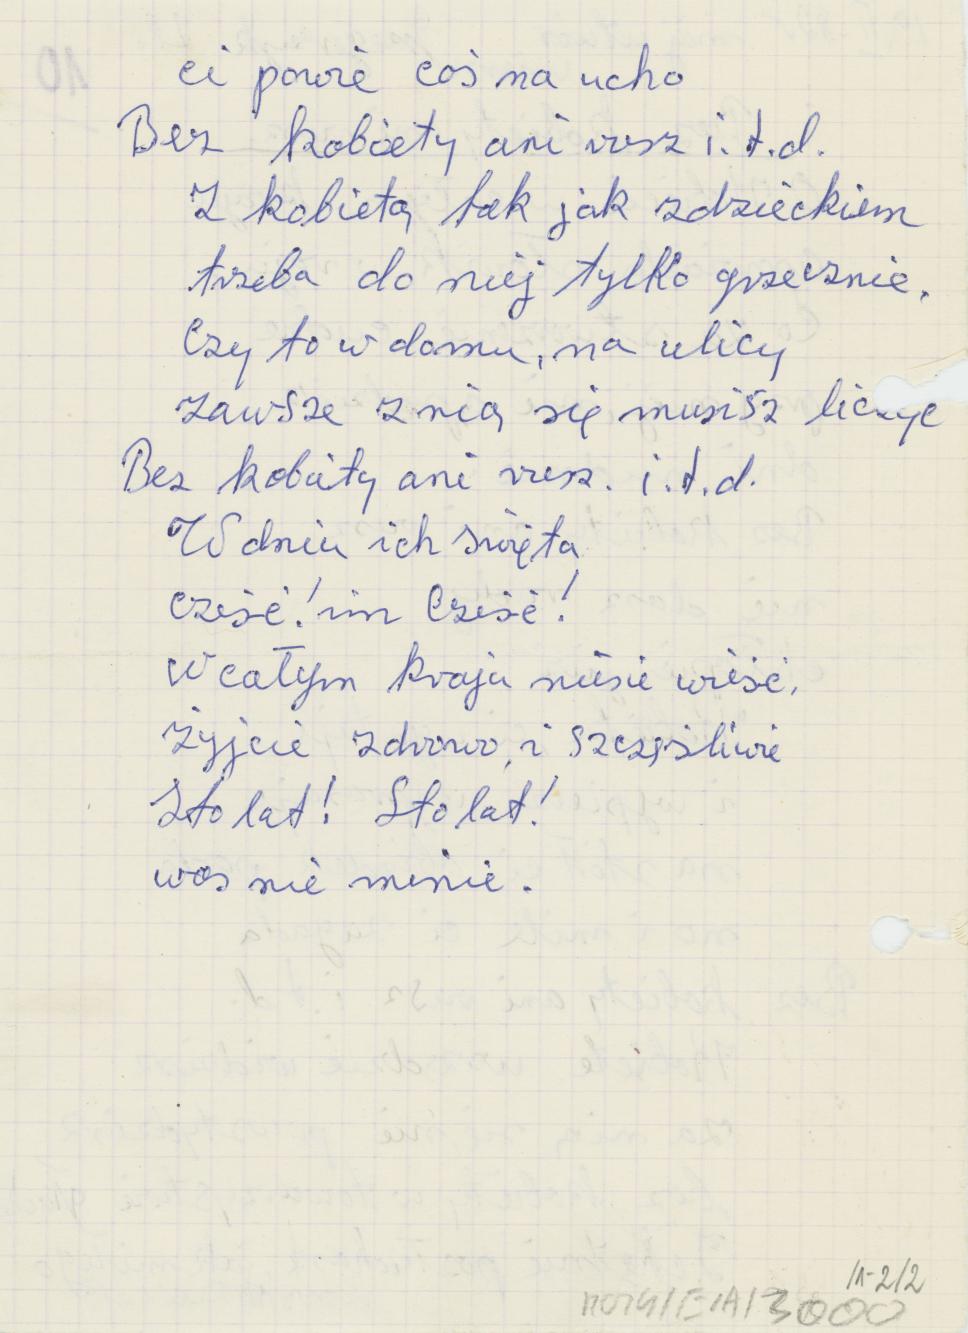 ci powie coś na ucho
Bez kobiety ani rusz i.t.d.
Z kobietą tak jak zdzieckiem
trzeba do niej tylko grzecznie.
Czy to w domu, na ulicy
zawsze z nią się musisz liczyc
Bez kobity ani rusz. i.t.d.
W dniu ich święta
cześć! im Cześć!
W całym kraju niesie wieść.
Żyjcie zdrowo, i szczęśliwie
Sto lat! Sto lat!
was nie minie.
/1-2/2
MOTG/E/A/3000